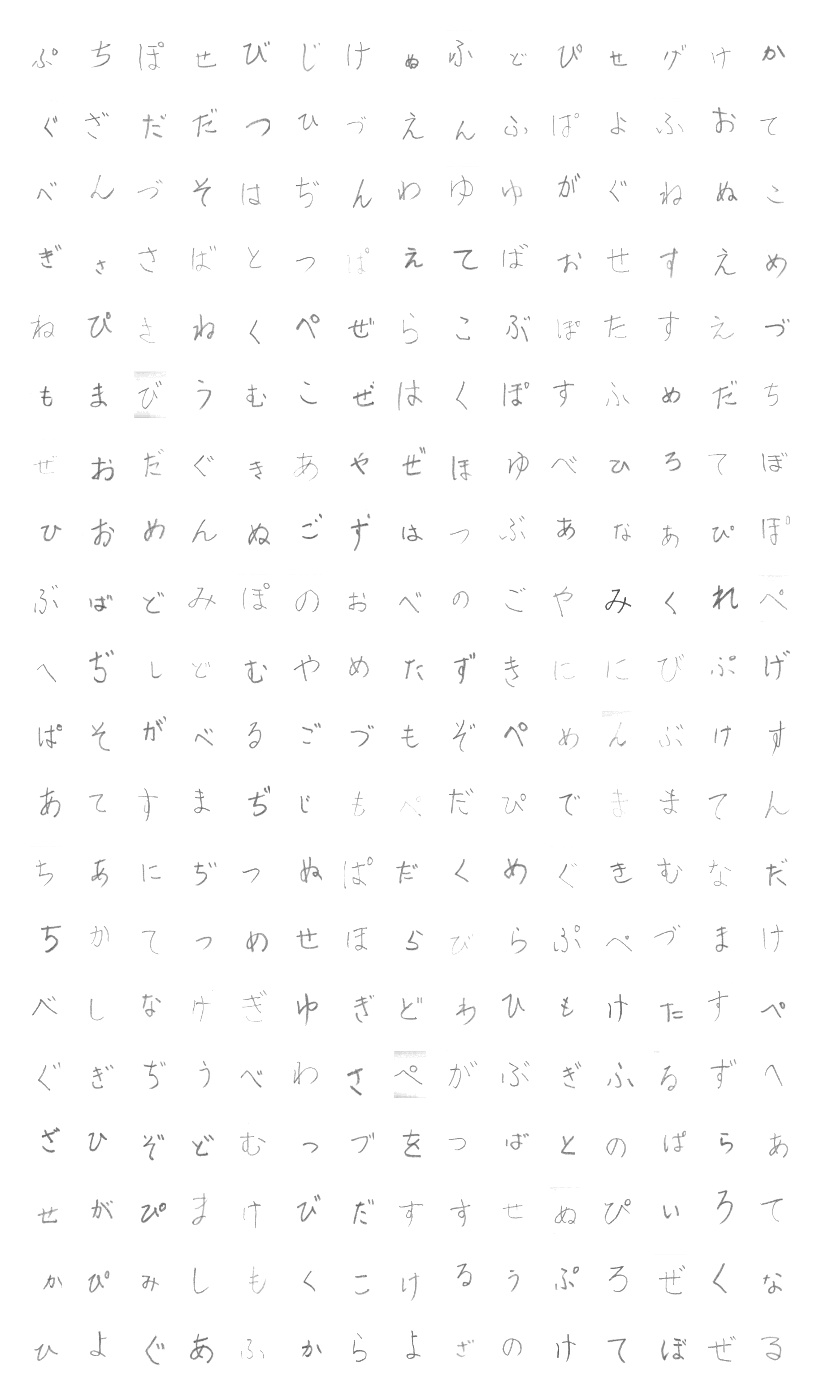 ぷちぽせびじけぬふどぴせげけか
ぐざだだつひづえんふぱよふおて
べんづそはぢんわゆゆがぐねぬこ
ぎささばとつぱえてばおせすえめ
ねぴさねくぺぜらこぶぽたすえづ
もまびうむこぜはくぽすふめだち
ぜおだぐきあやぜほゆべひろてぼ
ひおめんぬごずはつぶあなあぴぽ
ぶばどみぽのおべのごやみくれぺ
へぢしどむやめたずきににびぷげ
ぱそがべるごづもぞぺめんぶけす
あてすまぢじもぺだぴでままてん
ちあにぢつぬぱだくめぐきむなだ
ちかてつめせほらびらぷぺづまけ
べしなけぎゆぎどわひもけたすぺ
ぐぎぢうべわさぺがぶぎふるずへ
ざひぞどむっづをつばとのぱらあ
せがぴまけびだすすせぬぴいろて
かぴみしもくこけるうぷろぜくな
ひよぐあふからよざのけてぼぜる